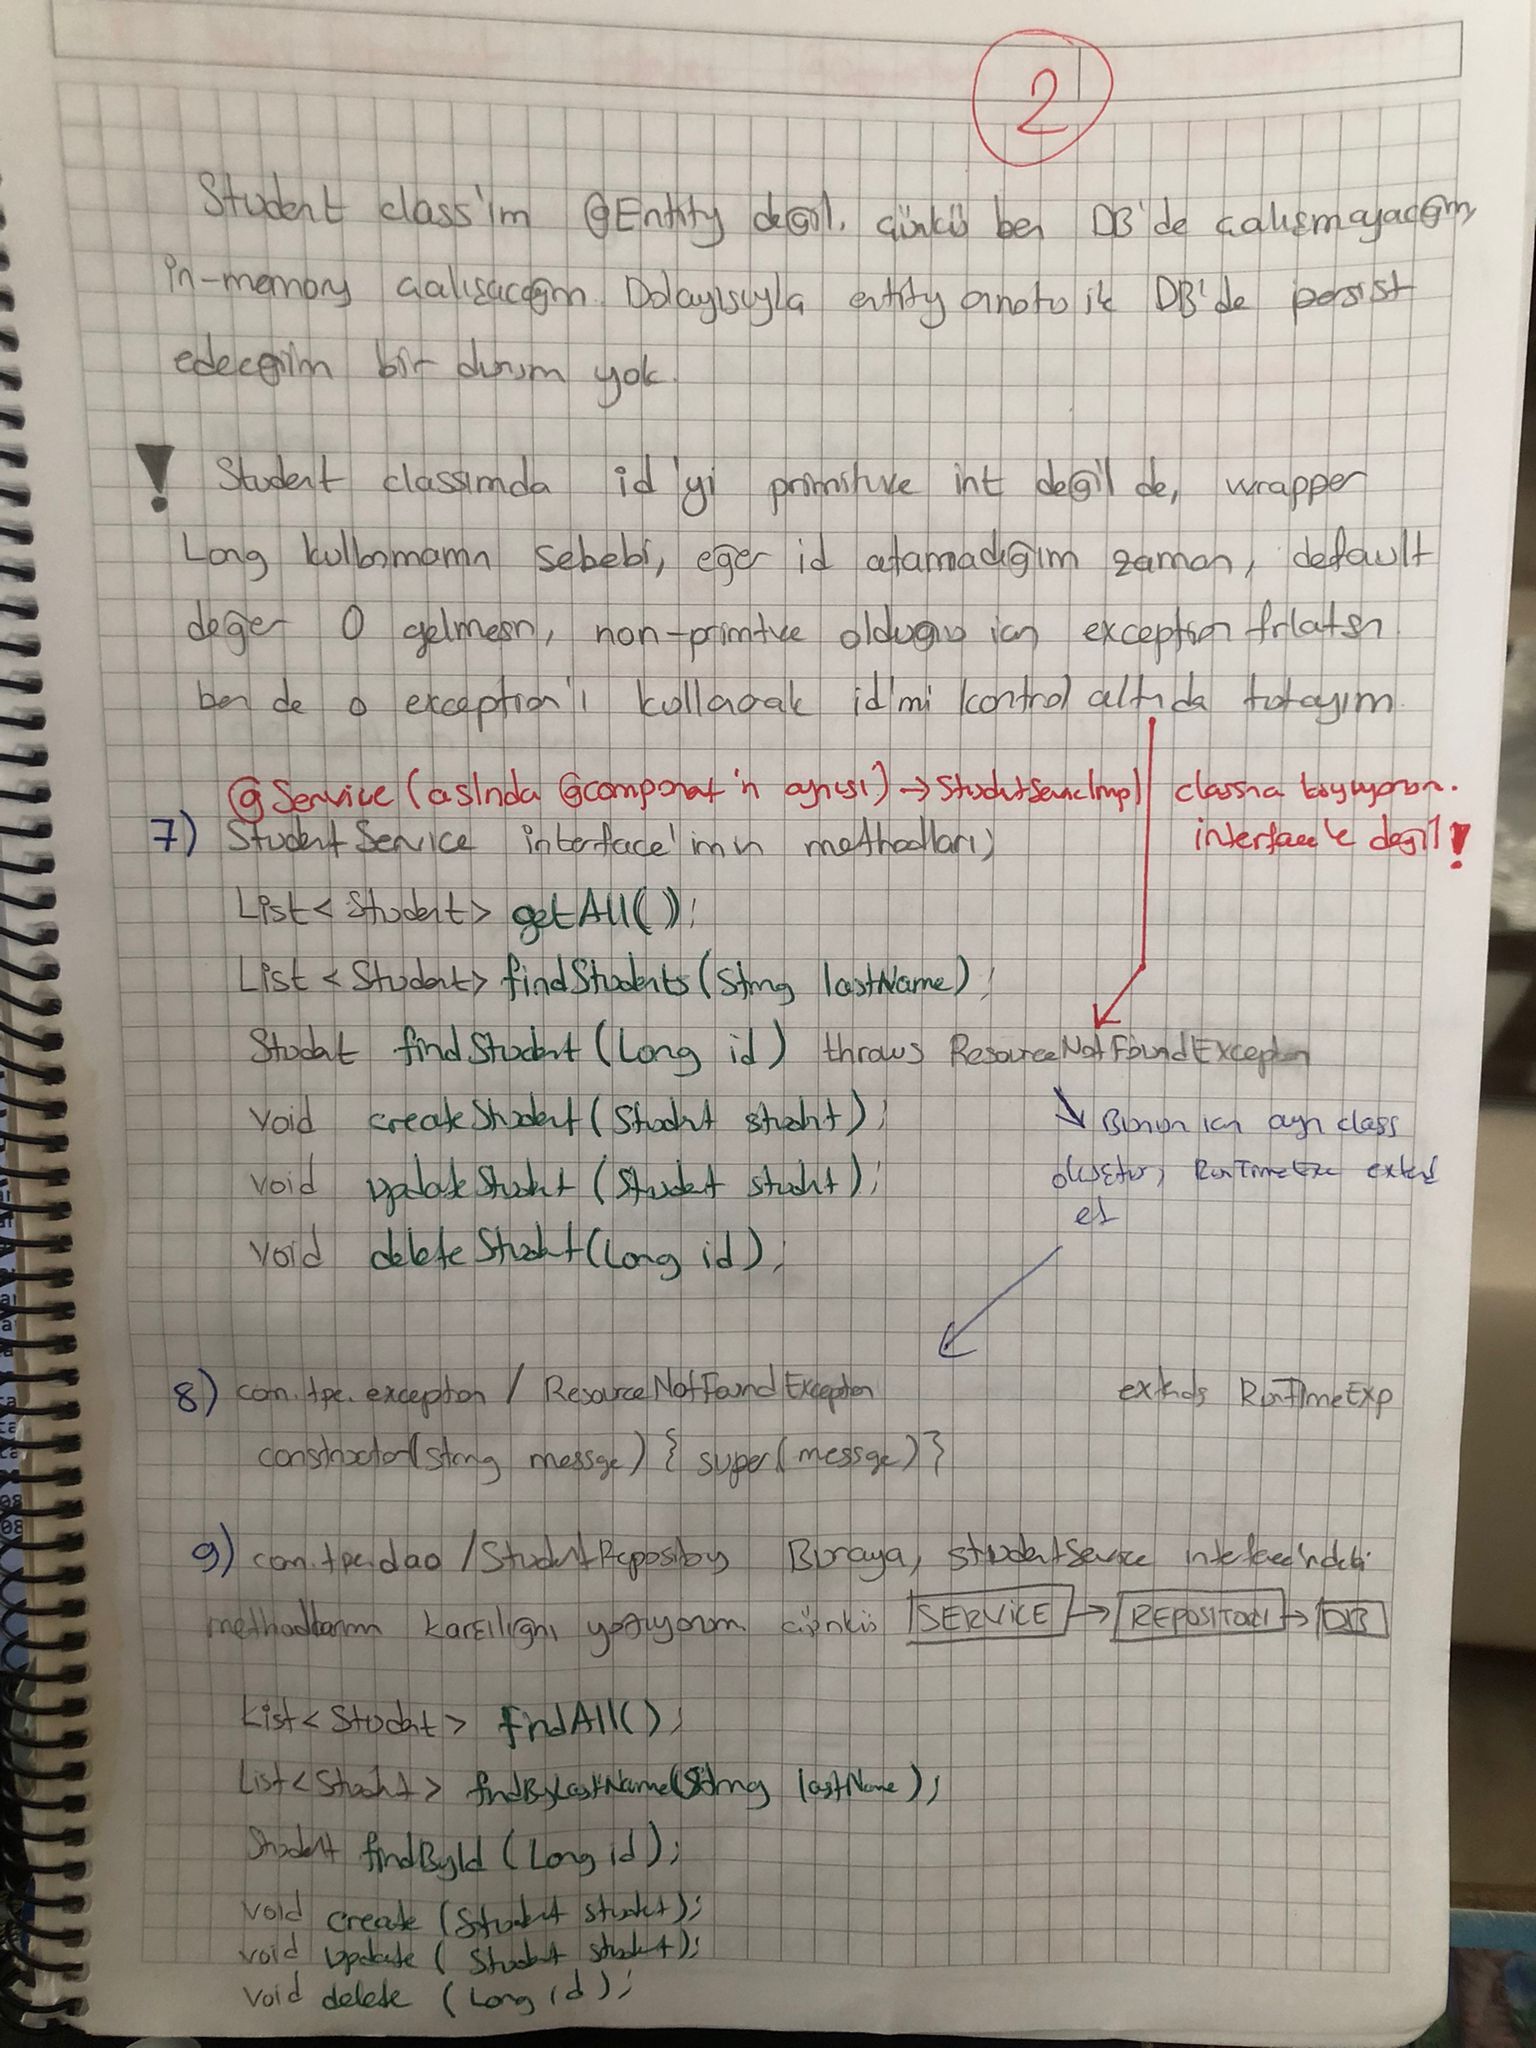 2
Student class'ım @Entity değil. çünkü ben DB'de çalışmayacağım,
in-memory çalışacağım. Dolayısıyla entity anoto ile DB'de persist
edeceğim bir durum yok.
! Student classımda id'yi primitive int değil de, wrapper
Long kullanmamın sebebi, eğer id atamadığım zaman, default
değer 0 gelmesin, non-primitive olduğu için exception fırlatsın
ben de o exception'ı kullanarak id'mi kontrol altında tutayım.
@Service (aslında @component'in aynısı) → StudentServiceImpl classına koyuyorum.
interface'e değil !
7) StudentService interface'imin methodları;
List<Student> getAll();
List<Student> findStudents(String lastName);
Student findStudent(Long id) throws ResourceNotFoundException
void createStudent(Student student);
Bunun için ayrı class
void updateStudent(Student student);
oluştur, RunTimeExc extend
et
void deleteStudent(Long id);
8) com.tpe.exception / ResourceNotFoundException extends RunTimeExp
constructor(string message) { super(message) }
9) com.tpe.dao / StudentRepository Buraya, studentService interface'indeki
methodların karşılığını yazıyorum. çünkü SERVICE → REPOSITORY → DB
List<Student> findAll();
List<Student> findByLastName(String lastName);
Student findById (Long id);
void create (Student student);
void update ( Student student);
void delete (Long id);